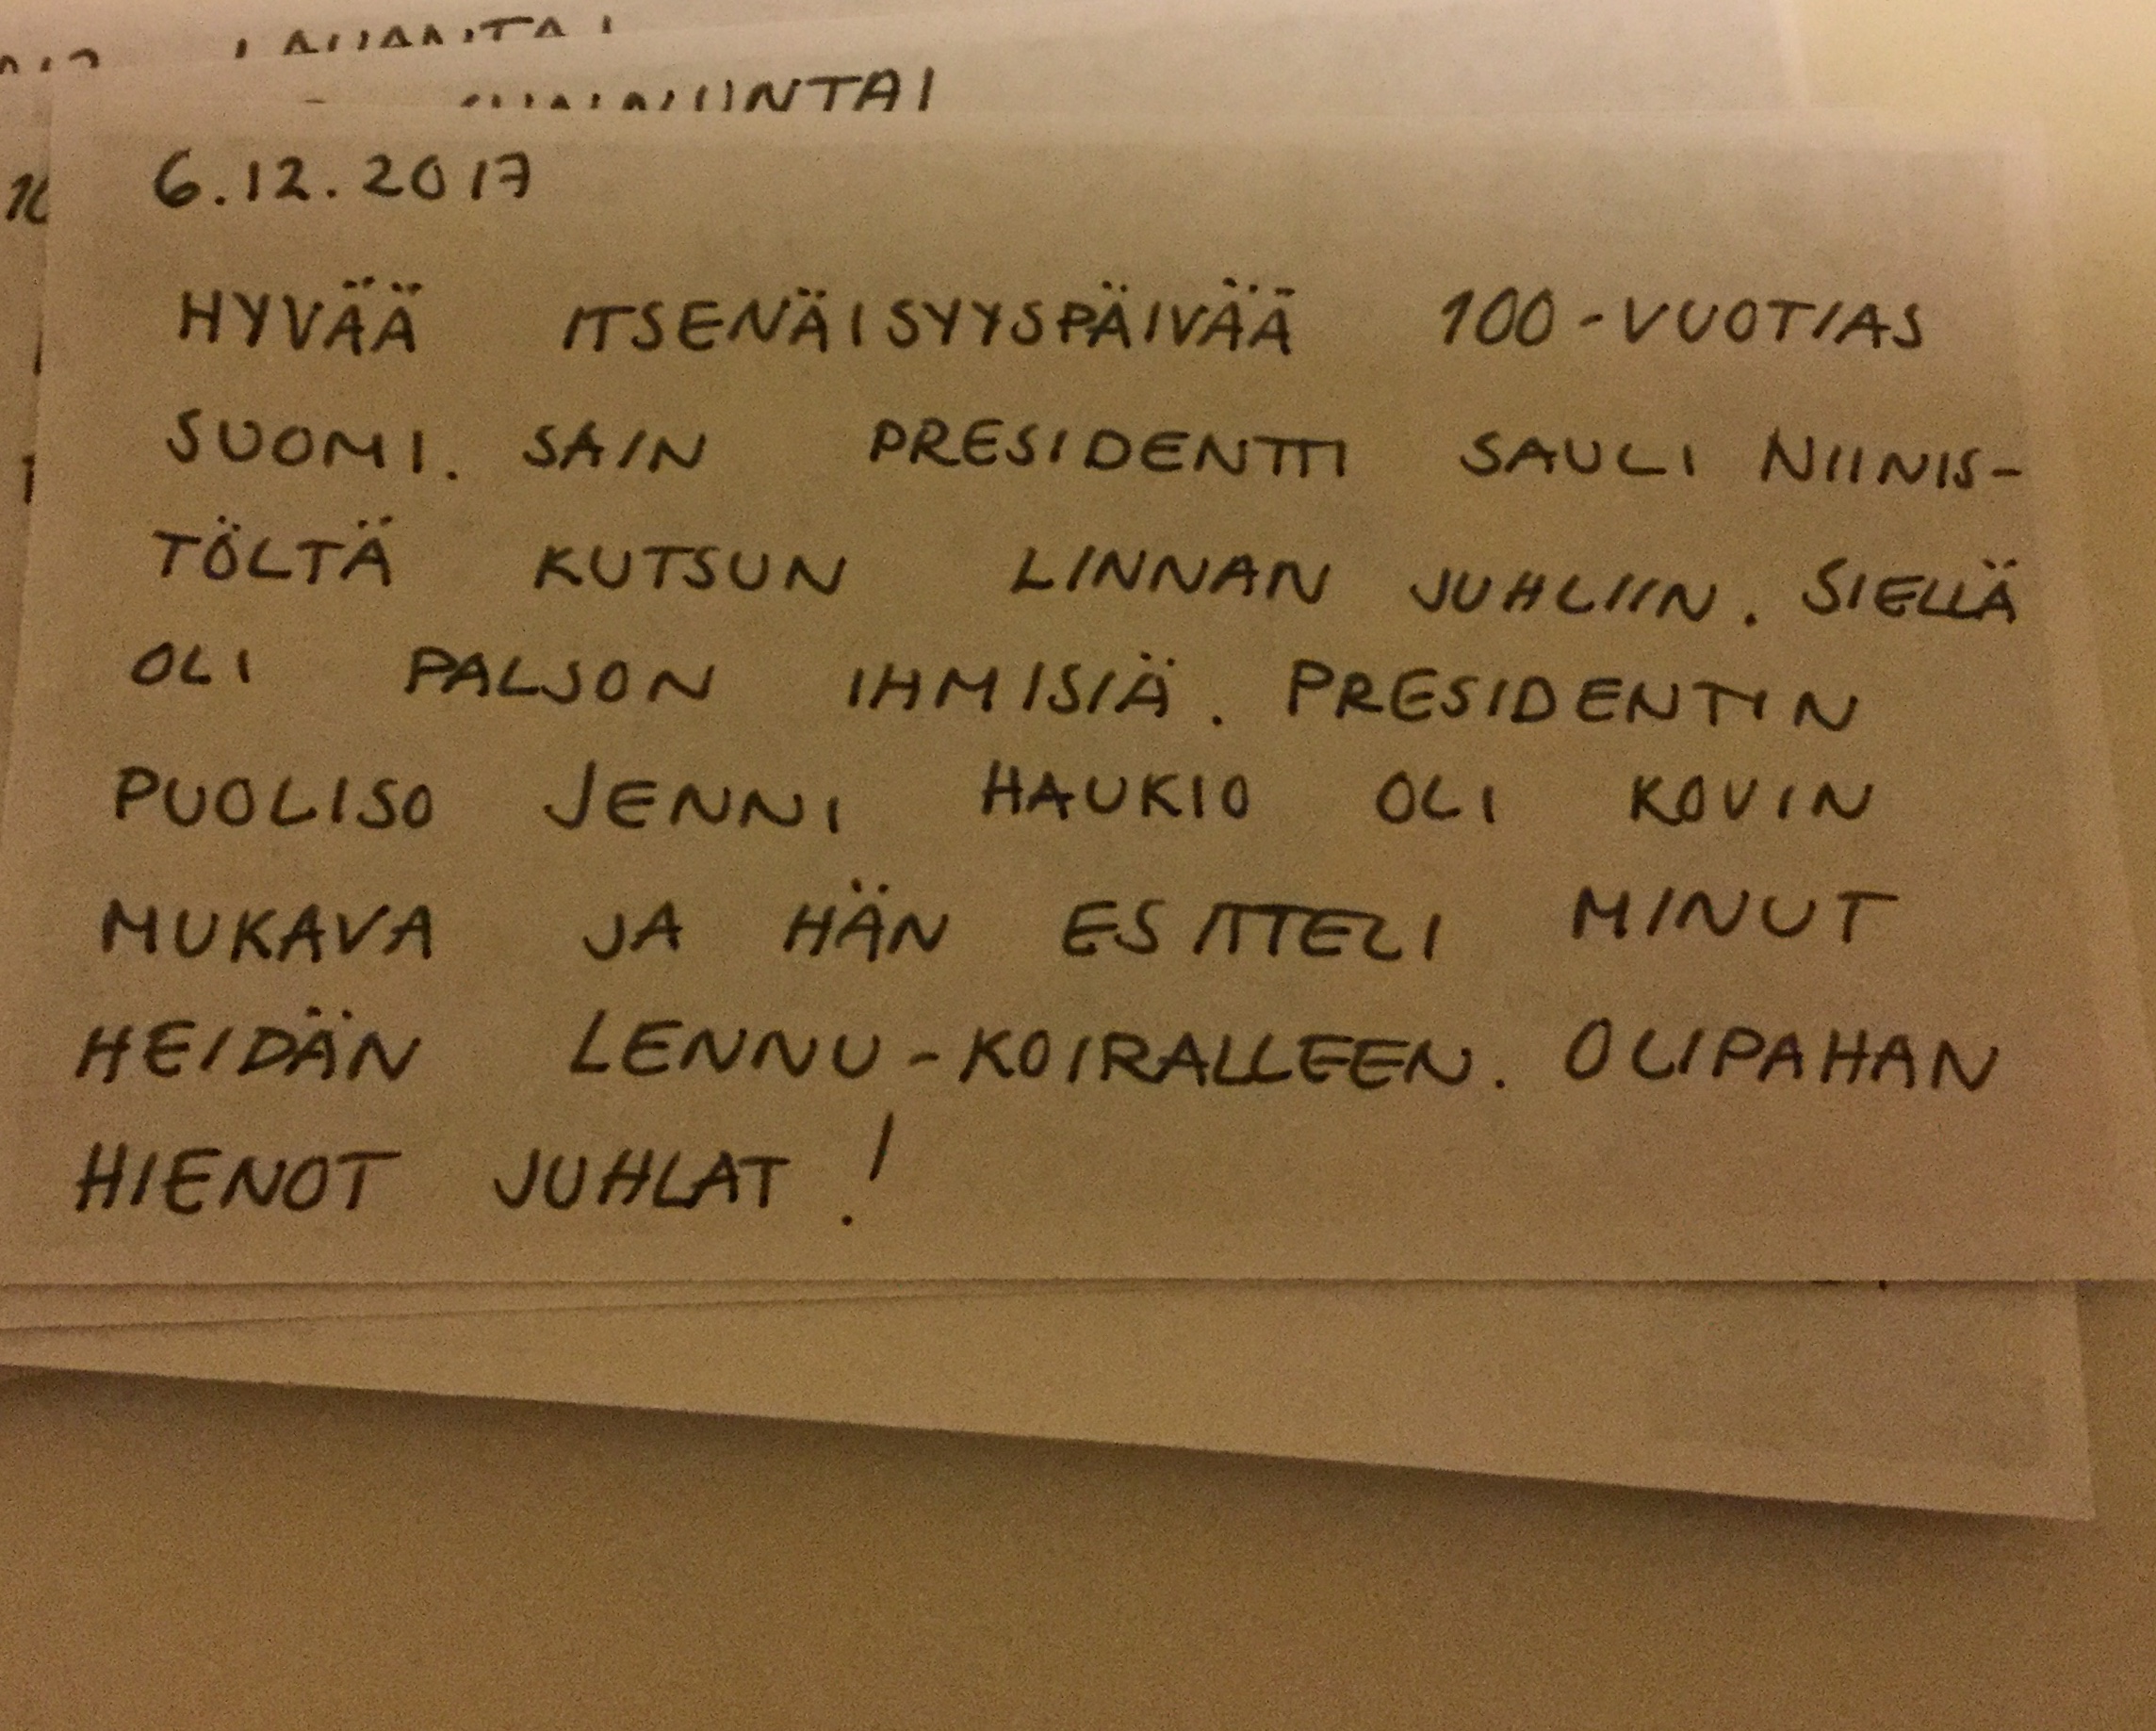 6.12.2017
HYVÄÄ ITSENÄISYYSPÄIVÄÄ 100-VUOTIAS
SUOMI. SAIN PRESIDENTTI SAULI NIINIS-
TÖLTÄ KUTSUN LINNAN JUHLIIN. SIELLÄ
OLI PALJON IHMISIÄ. PRESIDENTIN
PUOLISO JENNI HAUKIO OLI KOVIN
MUKAVA JA HÄN ESITTELI MINUT
HEIDÄN LENNU-KOIRALLEEN. OLIPAHAN
HIENOT JUHLAT!